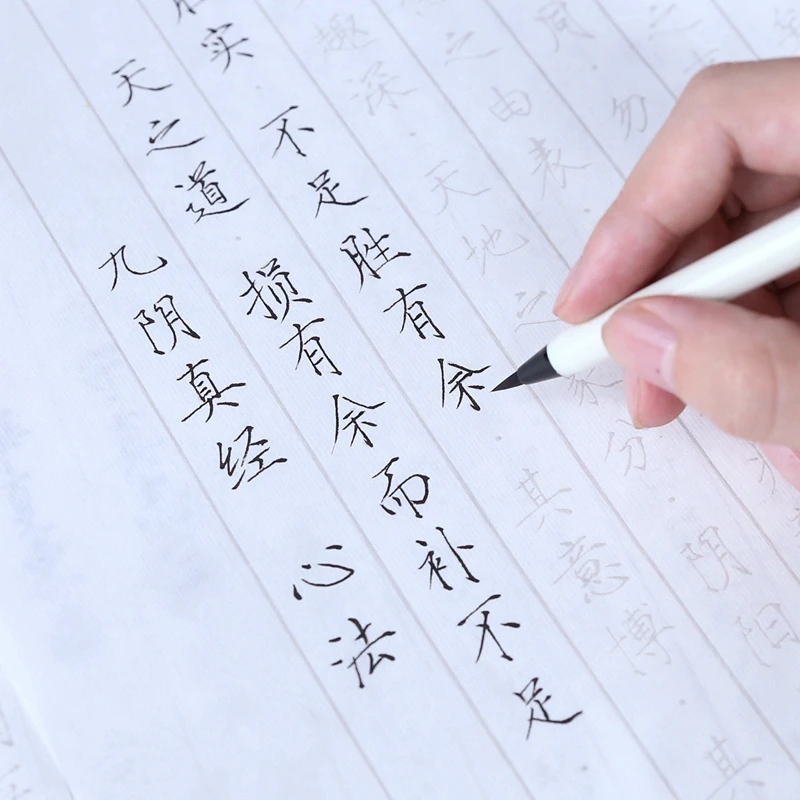 九阴真经 心法
天之道 损有余而补不足
实 不足胜有余 其意博 其
趣深 天地之象分 阴阳
之由表